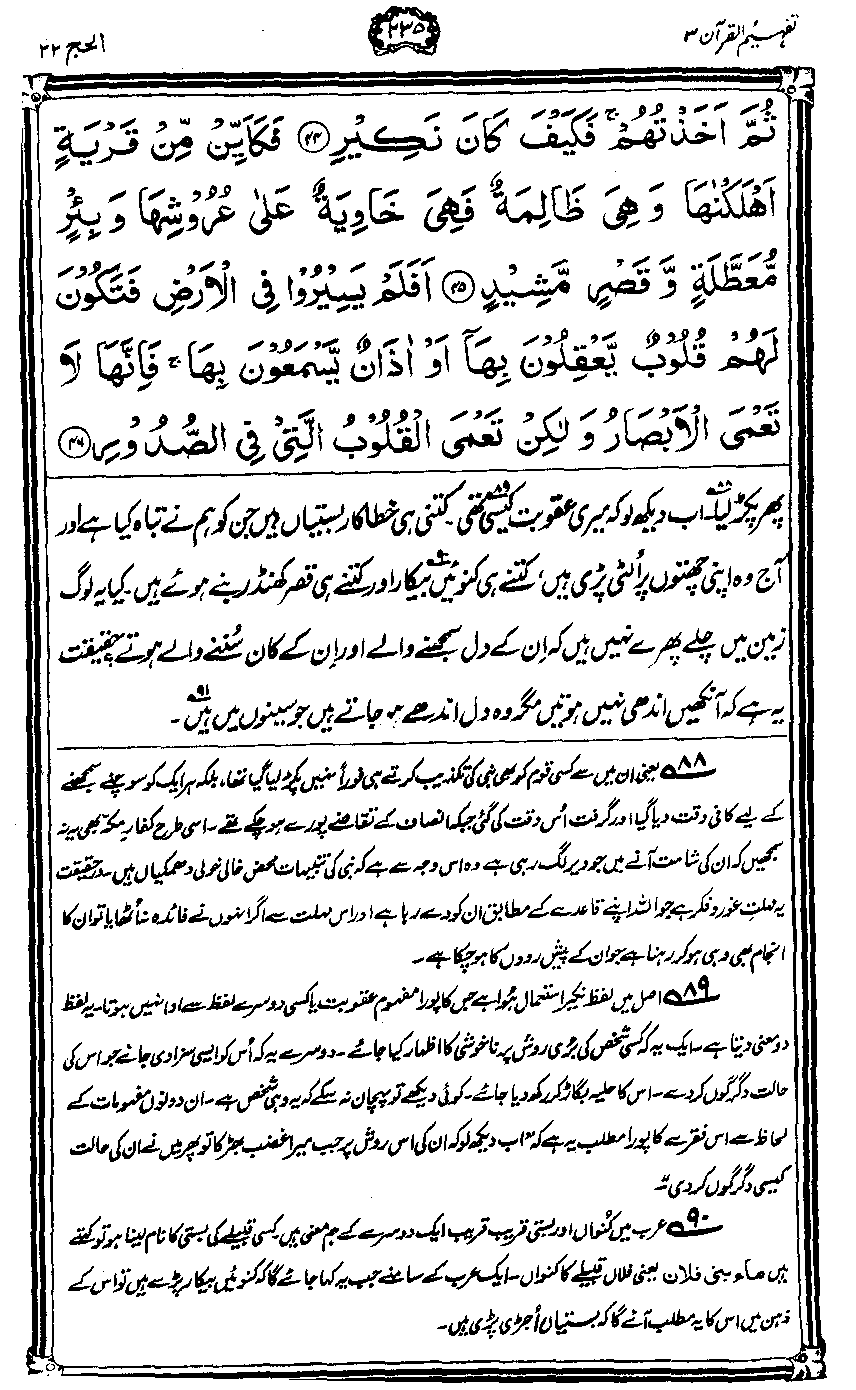 تفہیم القرآن ۳
۲۳۵
الحج ۲۲
ثُمَّ اَخَذْتُهُمْ ۚ فَكَيْفَ كَانَ نَكِيْرِ ﴿۴۴﴾ فَكَاَيِّنْ مِّنْ قَرْيَةٍ
اَهْلَكْنٰهَا وَ هِيَ ظَالِمَةٌ فَهِيَ خَاوِيَةٌ عَلٰى عُرُوْشِهَا وَ بِئْرٍ
مُّعَطَّلَةٍ وَّ قَصْرٍ مَّشِيْدٍ ﴿۴۵﴾ اَفَلَمْ يَسِيْرُوْا فِي الْاَرْضِ فَتَكُوْنَ
لَهُمْ قُلُوْبٌ يَّعْقِلُوْنَ بِهَاۤ اَوْ اٰذَانٌ يَّسْمَعُوْنَ بِهَا ۚ فَاِنَّهَا لَا
تَعْمَى الْاَبْصَارُ وَ لٰكِنْ تَعْمَى الْقُلُوْبُ الَّتِيْ فِي الصُّدُوْرِ ﴿۴۶﴾
پھر پکڑ لیا۸۸۔ اب دیکھ لو کہ میری عقوبت کیسی تھی۸۹۔ کتنی ہی خطاکار بستیاں ہیں جن کو ہم نے تباہ کیا ہے اور
آج وہ اپنی چھتوں پر اُلٹی پڑی ہیں، کتنے ہی کنوئیں۹۰ بیکار اور کتنے ہی قصر کھنڈر بنے ہوئے ہیں۔ کیا یہ لوگ
زمین میں چلے پھرے نہیں ہیں کہ اِن کے دل سمجھنے والے اور اِن کے کان سُننے والے ہوتے؟ حقیقت
یہ ہے کہ آنکھیں اندھی نہیں ہوتیں مگر وہ دل اندھے ہو جاتے ہیں جو سینوں میں ہیں۹۱۔
۸۸ یعنی ان میں سے کسی قوم کو بھی نبی کی تکذیب کرتے ہی فوراً نہیں پکڑ لیا گیا تھا، بلکہ ہر ایک کو سوچنے سمجھنے
کے لیے کافی وقت دیا گیا اور گرفت اُس وقت کی گئی جبکہ انصاف کے تقاضے پورے ہو چکے تھے۔ اسی طرح کفارِ مکہ بھی یہ نہ
سمجھیں کہ ان کی شامت آنے میں جو دیر لگ رہی ہے وہ اس وجہ سے ہے کہ نبی کی تنبیہات محض خالی خولی دھمکیاں ہیں۔ درحقیقت
یہ مہلتِ غور و فکر ہے جو اللہ اپنے قاعدے کے مطابق ان کو دے رہا ہے اور اس مہلت سے اگر انہوں نے فائدہ نہ اُٹھایا تو ان کا
انجام بھی وہی ہو کر رہنا ہے جو ان کے پیش رووں کا ہو چکا ہے۔
۸۹ اصل میں لفظ نکیر استعمال ہوا ہے جس کا پورا مفہوم عقوبت یا کسی دوسرے لفظ سے ادا نہیں ہوتا۔ یہ لفظ
دو معنی دیتا ہے۔ ایک یہ کہ کسی شخص کی بُری روش پر ناخوشی کا اظہار کیا جائے۔ دوسرے یہ کہ اُس کو ایسی سزا دی جائے جو اس کی
حالت دگرگوں کر دے۔ اس کا حلیہ بگاڑ کر رکھ دیا جائے۔ کوئی دیکھے تو پہچان نہ سکے کہ یہ وہی شخص ہے۔ ان دونوں مفہومات کے
لحاظ سے اس فقرے کا پورا مطلب یہ ہے کہ ”اب دیکھ لو کہ ان کی اس روش پر جب میرا غضب بھڑکا تو پھر میں نے ان کی حالت
کیسی دگرگوں کر دی“۔
۹۰ عرب میں کُنواں اور بستی قریب قریب ایک دوسرے کے ہم معنی ہیں۔ کسی قبیلے کی بستی کا نام لینا ہو تو کہتے
ہیں ماء بنی فلان یعنی فلاں قبیلے کا کنواں۔ ایک عرب کے سامنے جب یہ کہا جائے گا کہ کنوئیں بیکار پڑے ہیں تو اس کے
ذہن میں اس کا یہ مطلب آئے گا کہ بستیاں اُجڑی پڑی ہیں۔